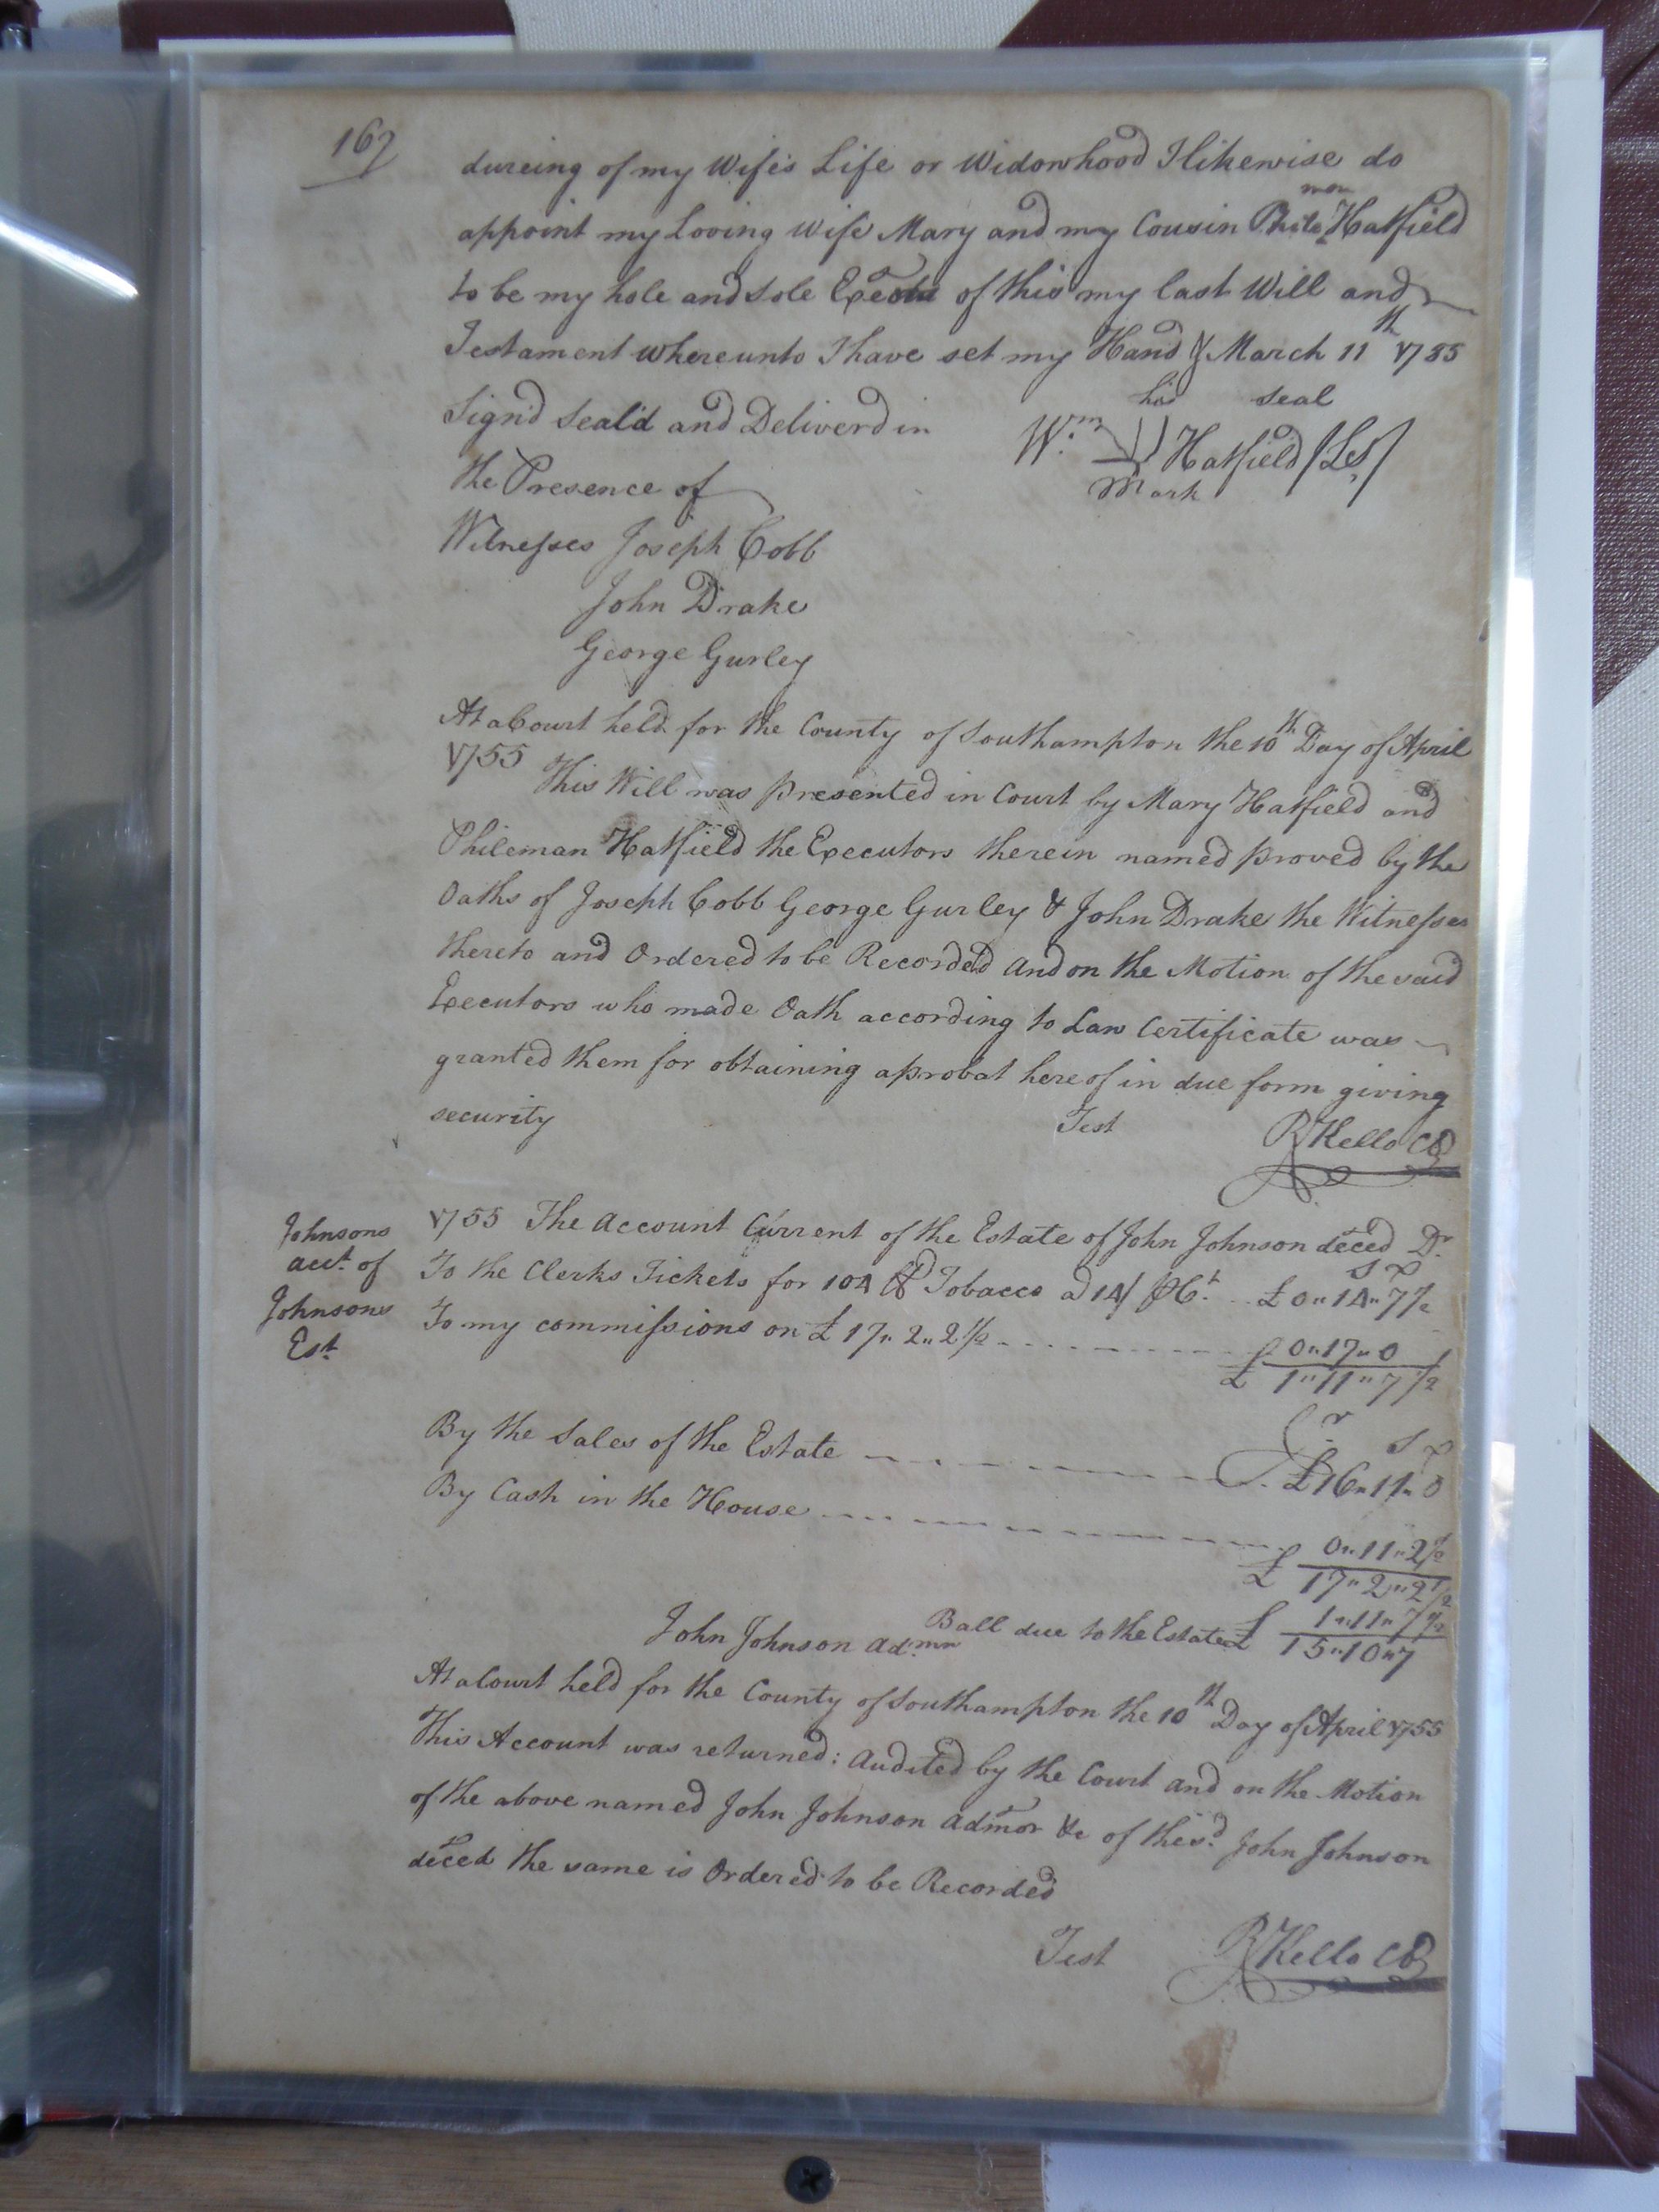 167
dureing of my Wife's Life or Widowhood I likewise do
appoint my Loving Wife Mary and my Cousin Phile^mon Hatfield
to be my hole and Sole Exectrs of this my last Will and
Testament whereunto I have set my Hand ye March 11th 1755
his seal
Sign'd Seal'd and Deliverd in Wm. Hatfield (LS)
the Presence of Mark
Witnesses Joseph Cobb
John Drake
George Gurley
At a Court held for the County of Southampton the 10th Day of April
1755 This Will was presented in Court by Mary Hatfield and
Phileman Hatfield the Executors therein named proved by the
Oaths of Joseph Cobb George Gurley & John Drake the Witnesses
thereto and Ordered to be Recorded And on the Motion of the said
Executors who made Oath according to Law Certificate was
granted them for obtaining a probat hereof in due form giving
security Test RKello CC
Johnsons
acct. of
Johnsons
Est.
1755 The Account Current of the Estate of John Johnson deced Dr.
S D
To the Clerks Tickets for 104 lb Tobacco a 14/ p Ct. £0"14"7½
To my commissions on £17"2"2½ 0"17"0
£ 1"11"7½
Cr.
S D
By the Sales of the Estate £16"11"0
By Cash in the House 0"11"2½
£ 17"2"2½
1"11"7½
John Johnson Admn. Ball due to the Estate £ 15"10"7
At a Court held for the County of Southampton the 10th Day of April 1755
This Account was returned: Audited by the Court and on the Motion
of the above named John Johnson Admor &c of the sd. John Johnson
deced the same is Ordered to be Recorded
Test RKello CC